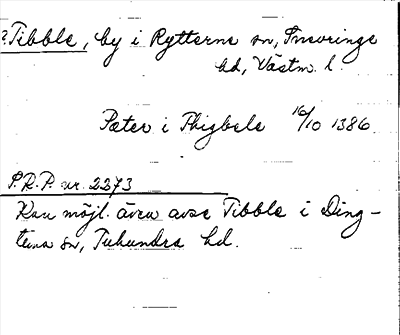 ?Tibble, by i Rytterne sn, Snevringe
hd, Västm. l.
Peter i Thigbele 16/10 1386.
S.R.P. nr. 2273
Kan möjl. även avse Tibble i Ding-
tuna sn, Tuhundra hd.